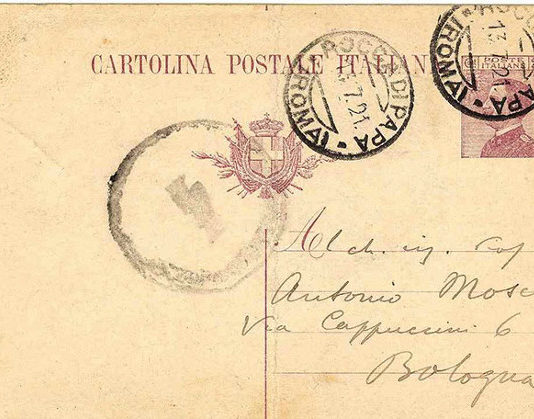 CARTOLINA POSTALE ITALIANA
ROCCA DI PAPA
(ROMA)
13.7.21.
ROCCA DI PAPA
(ROMA)
13.7.21.
POSTE
ITALIANE
Al ch. ig.
Antonio Mosc
Via Cappuccini 6
Bologna